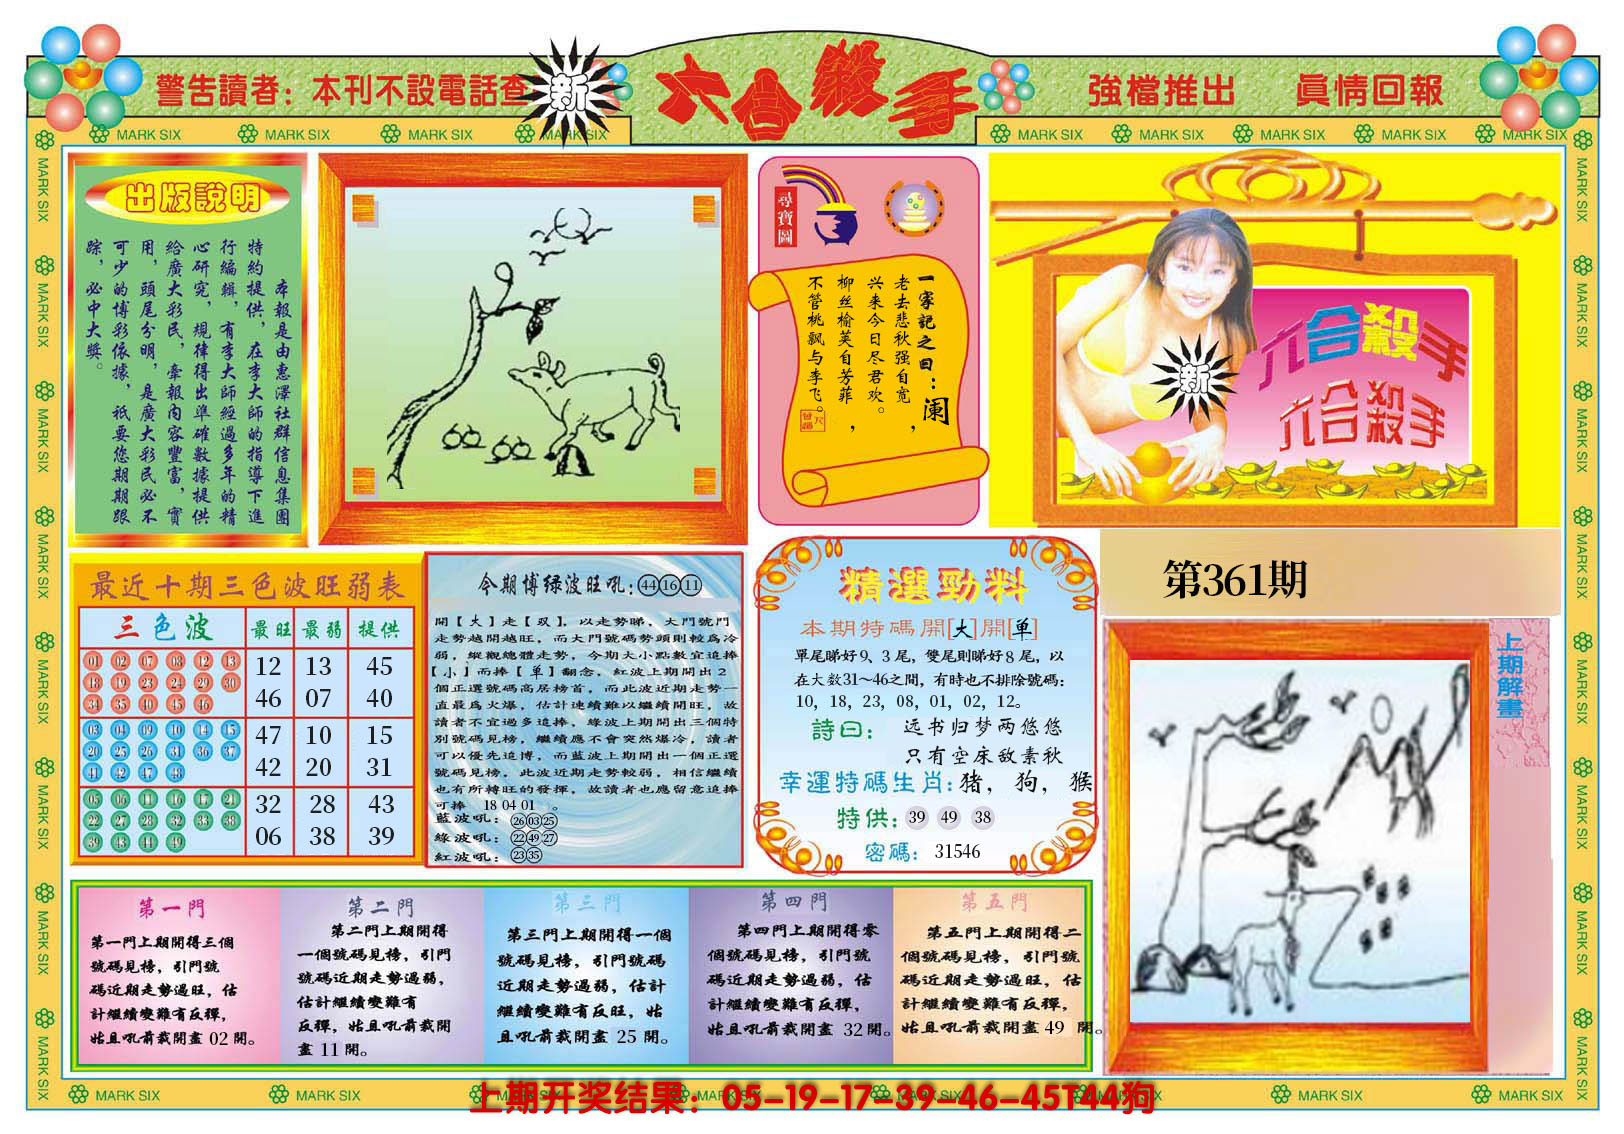 警告讀者：本刊不設電話查
新
六合殺手
強檔推出 眞情回報
MARK SIX
MARK SIX
MARK SIX
MARK SIX
MARK SIX
MARK SIX
MARK SIX
MARK SIX
MARK SIX
出版説明
本報是由惠澤社群信息集團
特約提供，在李大師的指導下進
行編輯，有李大師經過多年的精
心研究，規律得出準確數據提供
給廣大彩民，牽報内容豐富，實
用，頭尾分明，是廣大彩民必不
可少的博彩依據，祇要您期期跟
踪，必中大獎。
尋寶圖
一家記之曰：阑
老去悲秋强自宽，
兴来今日尽君欢。
柳丝榆荚自芳菲，
不管桃飘与李飞。
新
六合殺手
六合殺手
第361期
上期解畫
最近十期三色波旺弱表
三色波 最旺 最弱 提供
01 02 07 08 12 13
18 19 23 24 29 30
34 35 40 45 46
12 13 45
46 07 40
03 04 09 10 14 15
20 25 26 31 36 37
41 42 47 48
47 10 15
42 20 31
05 06 11 16 17 21
22 27 28 32 33 38
39 43 44 49
32 28 43
06 38 39
今期博绿波旺吼：44 16 11
開【大】走【双】，以走勢睇，大門號門
走勢越開越旺，而大門號碼勢頭則較爲冷
弱，縱觀總體走勢，今期大小點數宜追捧
【小】而捧【单】翻念，紅波上期開出 2
個正選號碼高居榜首，而此波近期走勢一
直最爲火爆，估計連續難以繼續開旺，故
讀者不宜過多追捧，綠波上期開出三個特
別號碼見榜，繼續應不會突然爆冷，讀者
可以優先追博，而藍波上期開出一個正選
號碼見榜，此波近期走勢較弱，相信繼續
也有所轉旺的發揮，故讀者也應留意追捧
可捧 18 04 01 。
藍波吼：26 03 25
綠波吼：22 49 27
紅波吼：23 35
精選勁料
本期特碼開[大]開[单]
單尾睇好9、3尾，雙尾則睇好8尾，以
在大数31～46之間，有時也不排除號碼：
10，18，23，08，01，02，12。
詩曰：远书归梦两悠悠
只有空床敌素秋
幸運特碼生肖：猪，狗，猴
特供：39 49 38
密碼：31546
第一門
第一門上期開得三個
號碼見榜，引門號
碼近期走勢過旺，估
計繼續變難有反彈，
姑且吼前裁開盡 02 開。
第二門
第二門上期開得
一個號碼見榜，引門
號碼近期走勢過弱，
估計繼續變難有
反彈，姑且吼前裁開
盡 11 開。
第三門
第三門上期開得一個
號碼見榜，引門號碼
近期走勢過弱，估計
繼續變難有反旺，姑
且吼前裁開盡 25 開。
第四門
第四門上期開得零
個號碼見榜，引門號
碼近期走勢過弱，估
計繼續變難有反彈，
姑且吼前裁開盡 32 開。
第五門
第五門上期開得二
個號碼見榜，引門號
碼近期走勢過旺，估
計繼續變難有反彈，
姑且吼前裁開盡 49 開。
上期开奖结果：05-19-17-39-46-45T44狗
MARK SIX
MARK SIX
MARK SIX
MARK SIX
MARK SIX
MARK SIX
MARK SIX